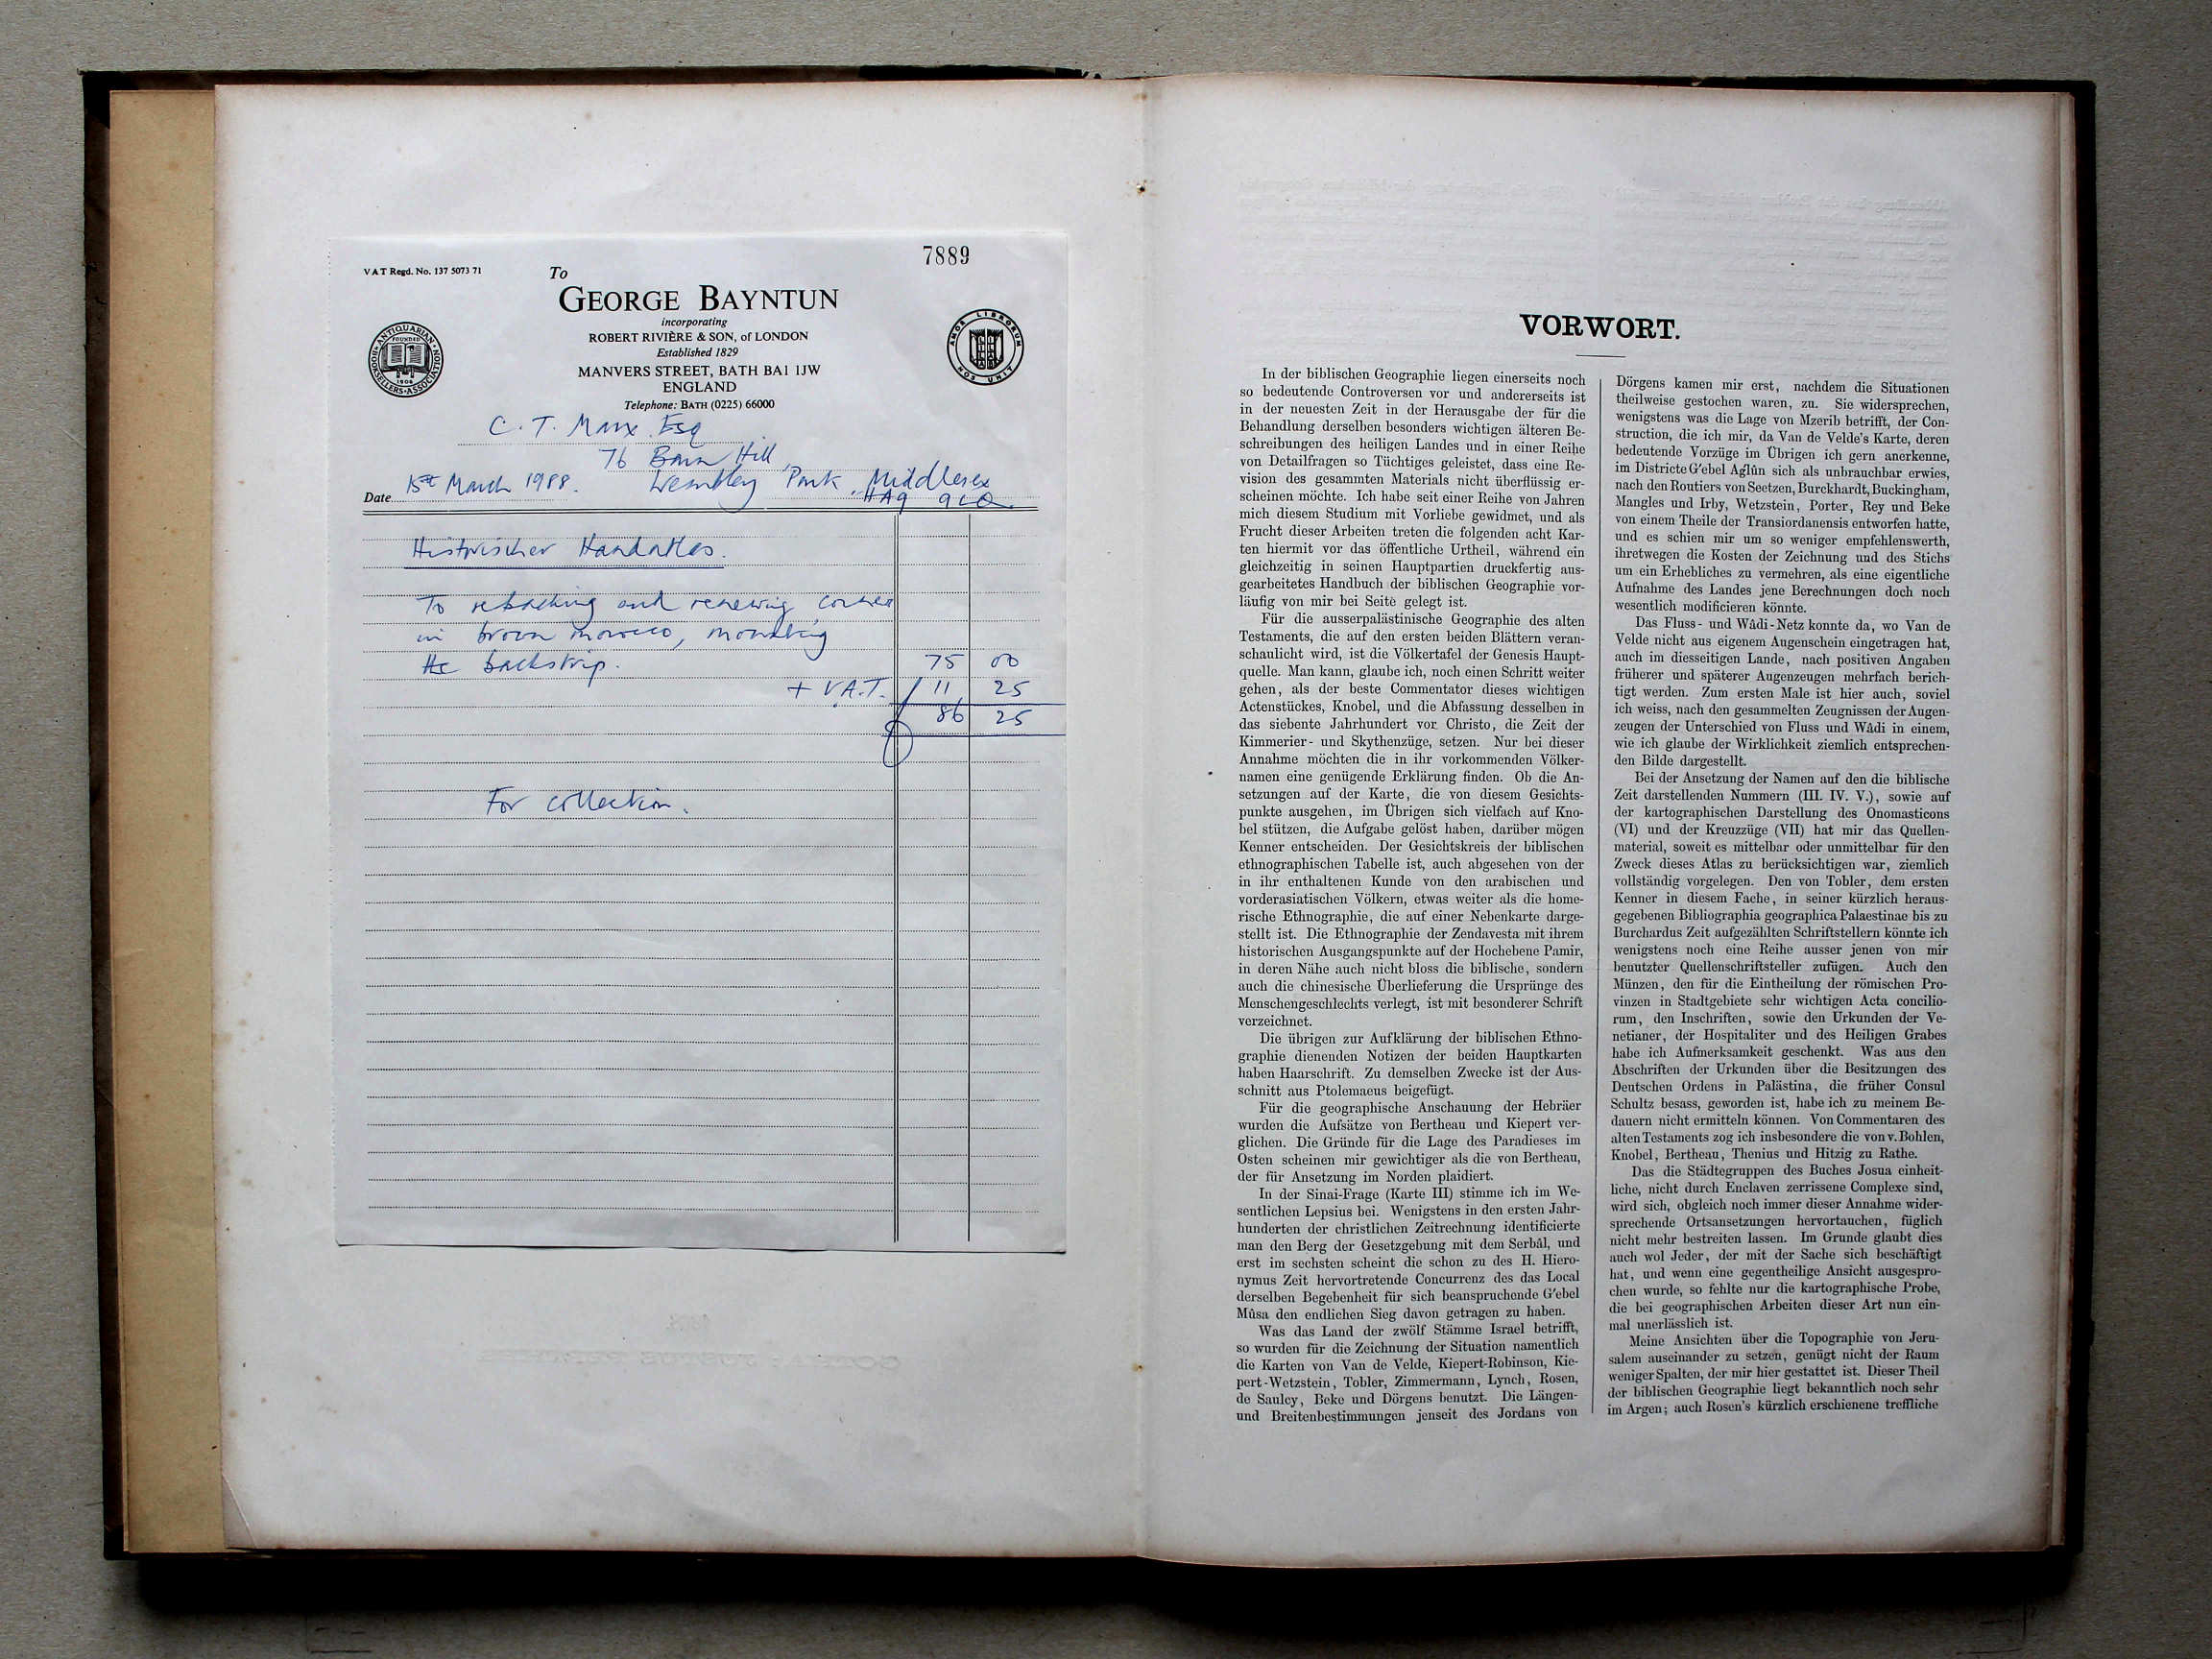 7889
VAT Regd. No. 137 5073 71
To
GEORGE BAYNTUN
incorporating
ROBERT RIVIÈRE & SON, of LONDON
Established 1829
MANVERS STREET, BATH BA1 1JW
ENGLAND
Telephone: BATH (0225) 66000
ANTIQUARIAN BOOKSELLERS ASSOCIATION
FOUNDED
1906
AMOR LIBRORUM
NOS UNIT
C. T. Marx Esq
76 Barn Hill
Wembley Park, Middlesex
Date 15th March 1988.
HA9 9LQ
Historischer Handatlas.
To rebacking and renewing corners
in brown morocco, mounting
the backstrip.
75 00
+ V.A.T. 11 25
86 25
For collection.
VORWORT.
In der biblischen Geographie liegen einerseits noch
so bedeutende Controversen vor und andererseits ist
in der neuesten Zeit in der Herausgabe der für die
Behandlung derselben besonders wichtigen älteren Be-
schreibungen des heiligen Landes und in einer Reihe
von Detailfragen so Tüchtiges geleistet, dass eine Re-
vision des gesammten Materials nicht überflüssig er-
scheinen möchte. Ich habe seit einer Reihe von Jahren
mich diesem Studium mit Vorliebe gewidmet, und als
Frucht dieser Arbeiten treten die folgenden acht Kar-
ten hiermit vor das öffentliche Urtheil, während ein
gleichzeitig in seinen Hauptpartien druckfertig aus-
gearbeitetes Handbuch der biblischen Geographie vor-
läufig von mir bei Seite gelegt ist.
Für die ausserpalästinische Geographie des alten
Testaments, die auf den ersten beiden Blättern veran-
schaulicht wird, ist die Völkertafel der Genesis Haupt-
quelle. Man kann, glaube ich, noch einen Schritt weiter
gehen, als der beste Commentator dieses wichtigen
Actenstückes, Knobel, und die Abfassung desselben in
das siebente Jahrhundert vor Christo, die Zeit der
Kimmerier- und Skythenzüge, setzen. Nur bei dieser
Annahme möchten die in ihr vorkommenden Völker-
namen eine genügende Erklärung finden. Ob die An-
setzungen auf der Karte, die von diesem Gesichts-
punkte ausgehen, im Übrigen sich vielfach auf Kno-
bel stützen, die Aufgabe gelöst haben, darüber mögen
Kenner entscheiden. Der Gesichtskreis der biblischen
ethnographischen Tabelle ist, auch abgesehen von der
in ihr enthaltenen Kunde von den arabischen und
vorderasiatischen Völkern, etwas weiter als die home-
rische Ethnographie, die auf einer Nebenkarte darge-
stellt ist. Die Ethnographie der Zendavesta mit ihrem
historischen Ausgangspunkte auf der Hochebene Pamir,
in deren Nähe auch nicht bloss die biblische, sondern
auch die chinesische Überlieferung die Ursprünge des
Menschengeschlechts verlegt, ist mit besonderer Schrift
verzeichnet.
Die übrigen zur Aufklärung der biblischen Ethno-
graphie dienenden Notizen der beiden Hauptkarten
haben Haarschrift. Zu demselben Zwecke ist der Aus-
schnitt aus Ptolemaeus beigefügt.
Für die geographische Anschauung der Hebräer
wurden die Aufsätze von Bertheau und Kiepert ver-
glichen. Die Gründe für die Lage des Paradieses im
Osten scheinen mir gewichtiger als die von Bertheau,
der für Ansetzung im Norden plaidiert.
In der Sinai-Frage (Karte III) stimme ich im We-
sentlichen Lepsius bei. Wenigstens in den ersten Jahr-
hunderten der christlichen Zeitrechnung identificierte
man den Berg der Gesetzgebung mit dem Serbâl, und
erst im sechsten scheint die schon zu des H. Hiero-
nymus Zeit hervortretende Concurrenz des das Local
derselben Begebenheit für sich beanspruchende G'ebel
Mûsa den endlichen Sieg davon getragen zu haben.
Was das Land der zwölf Stämme Israel betrifft,
so wurden für die Zeichnung der Situation namentlich
die Karten von Van de Velde, Kiepert-Robinson, Kie-
pert-Wetzstein, Tobler, Zimmermann, Lynch, Rosen,
de Saulcy, Beke und Dörgens benutzt. Die Längen-
und Breitenbestimmungen jenseit des Jordans von
Dörgens kamen mir erst, nachdem die Situationen
theilweise gestochen waren, zu. Sie widersprechen,
wenigstens was die Lage von Mzerib betrifft, der Con-
struction, die ich mir, da Van de Velde's Karte, deren
bedeutende Vorzüge im Übrigen ich gern anerkenne,
im Districte G'ebel Aglûn sich als unbrauchbar erwies,
nach den Routiers von Seetzen, Burckhardt, Buckingham,
Mangles und Irby, Wetzstein, Porter, Rey und Beke
von einem Theile der Transiordanensis entworfen hatte,
und es schien mir um so weniger empfehlenswerth,
ihretwegen die Kosten der Zeichnung und des Stichs
um ein Erhebliches zu vermehren, als eine eigentliche
Aufnahme des Landes jene Berechnungen doch noch
wesentlich modificieren könnte.
Das Fluss- und Wâdi-Netz konnte da, wo Van de
Velde nicht aus eigenem Augenschein eingetragen hat,
auch im diesseitigen Lande, nach positiven Angaben
früherer und späterer Augenzeugen mehrfach berich-
tigt werden. Zum ersten Male ist hier auch, soviel
ich weiss, nach den gesammelten Zeugnissen der Augen-
zeugen der Unterschied von Fluss und Wâdi in einem,
wie ich glaube der Wirklichkeit ziemlich entsprechen-
den Bilde dargestellt.
Bei der Ansetzung der Namen auf den die biblische
Zeit darstellenden Nummern (III. IV. V.), sowie auf
der kartographischen Darstellung des Onomasticons
(VI) und der Kreuzzüge (VII) hat mir das Quellen-
material, soweit es mittelbar oder unmittelbar für den
Zweck dieses Atlas zu berücksichtigen war, ziemlich
vollständig vorgelegen. Den von Tobler, dem ersten
Kenner in diesem Fache, in seiner kürzlich heraus-
gegebenen Bibliographia geographica Palaestinae bis zu
Burchardus Zeit aufgezählten Schriftstellern könnte ich
wenigstens noch eine Reihe ausser jenen von mir
benutzter Quellenschriftsteller zufügen. Auch den
Münzen, den für die Eintheilung der römischen Pro-
vinzen in Stadtgebiete sehr wichtigen Acta concilio-
rum, den Inschriften, sowie den Urkunden der Ve-
netianer, der Hospitaliter und des Heiligen Grabes
habe ich Aufmerksamkeit geschenkt. Was aus den
Abschriften der Urkunden über die Besitzungen des
Deutschen Ordens in Palästina, die früher Consul
Schultz besass, geworden ist, habe ich zu meinem Be-
dauern nicht ermitteln können. Von Commentaren des
alten Testaments zog ich insbesondere die von v. Bohlen,
Knobel, Bertheau, Thenius und Hitzig zu Rathe.
Das die Städtegruppen des Buches Josua einheit-
liche, nicht durch Enclaven zerrissene Complexe sind,
wird sich, obgleich noch immer dieser Annahme wider-
sprechende Ortsansetzungen hervortauchen, füglich
nicht mehr bestreiten lassen. Im Grunde glaubt dies
auch wol Jeder, der mit der Sache sich beschäftigt
hat, und wenn eine gegentheilige Ansicht ausgespro-
chen wurde, so fehlte nur die kartographische Probe,
die bei geographischen Arbeiten dieser Art nun ein-
mal unerlässlich ist.
Meine Ansichten über die Topographie von Jeru-
salem auseinander zu setzen, genügt nicht der Raum
weniger Spalten, der mir hier gestattet ist. Dieser Theil
der biblischen Geographie liegt bekanntlich noch sehr
im Argen; auch Rosen's kürzlich erschienene treffliche